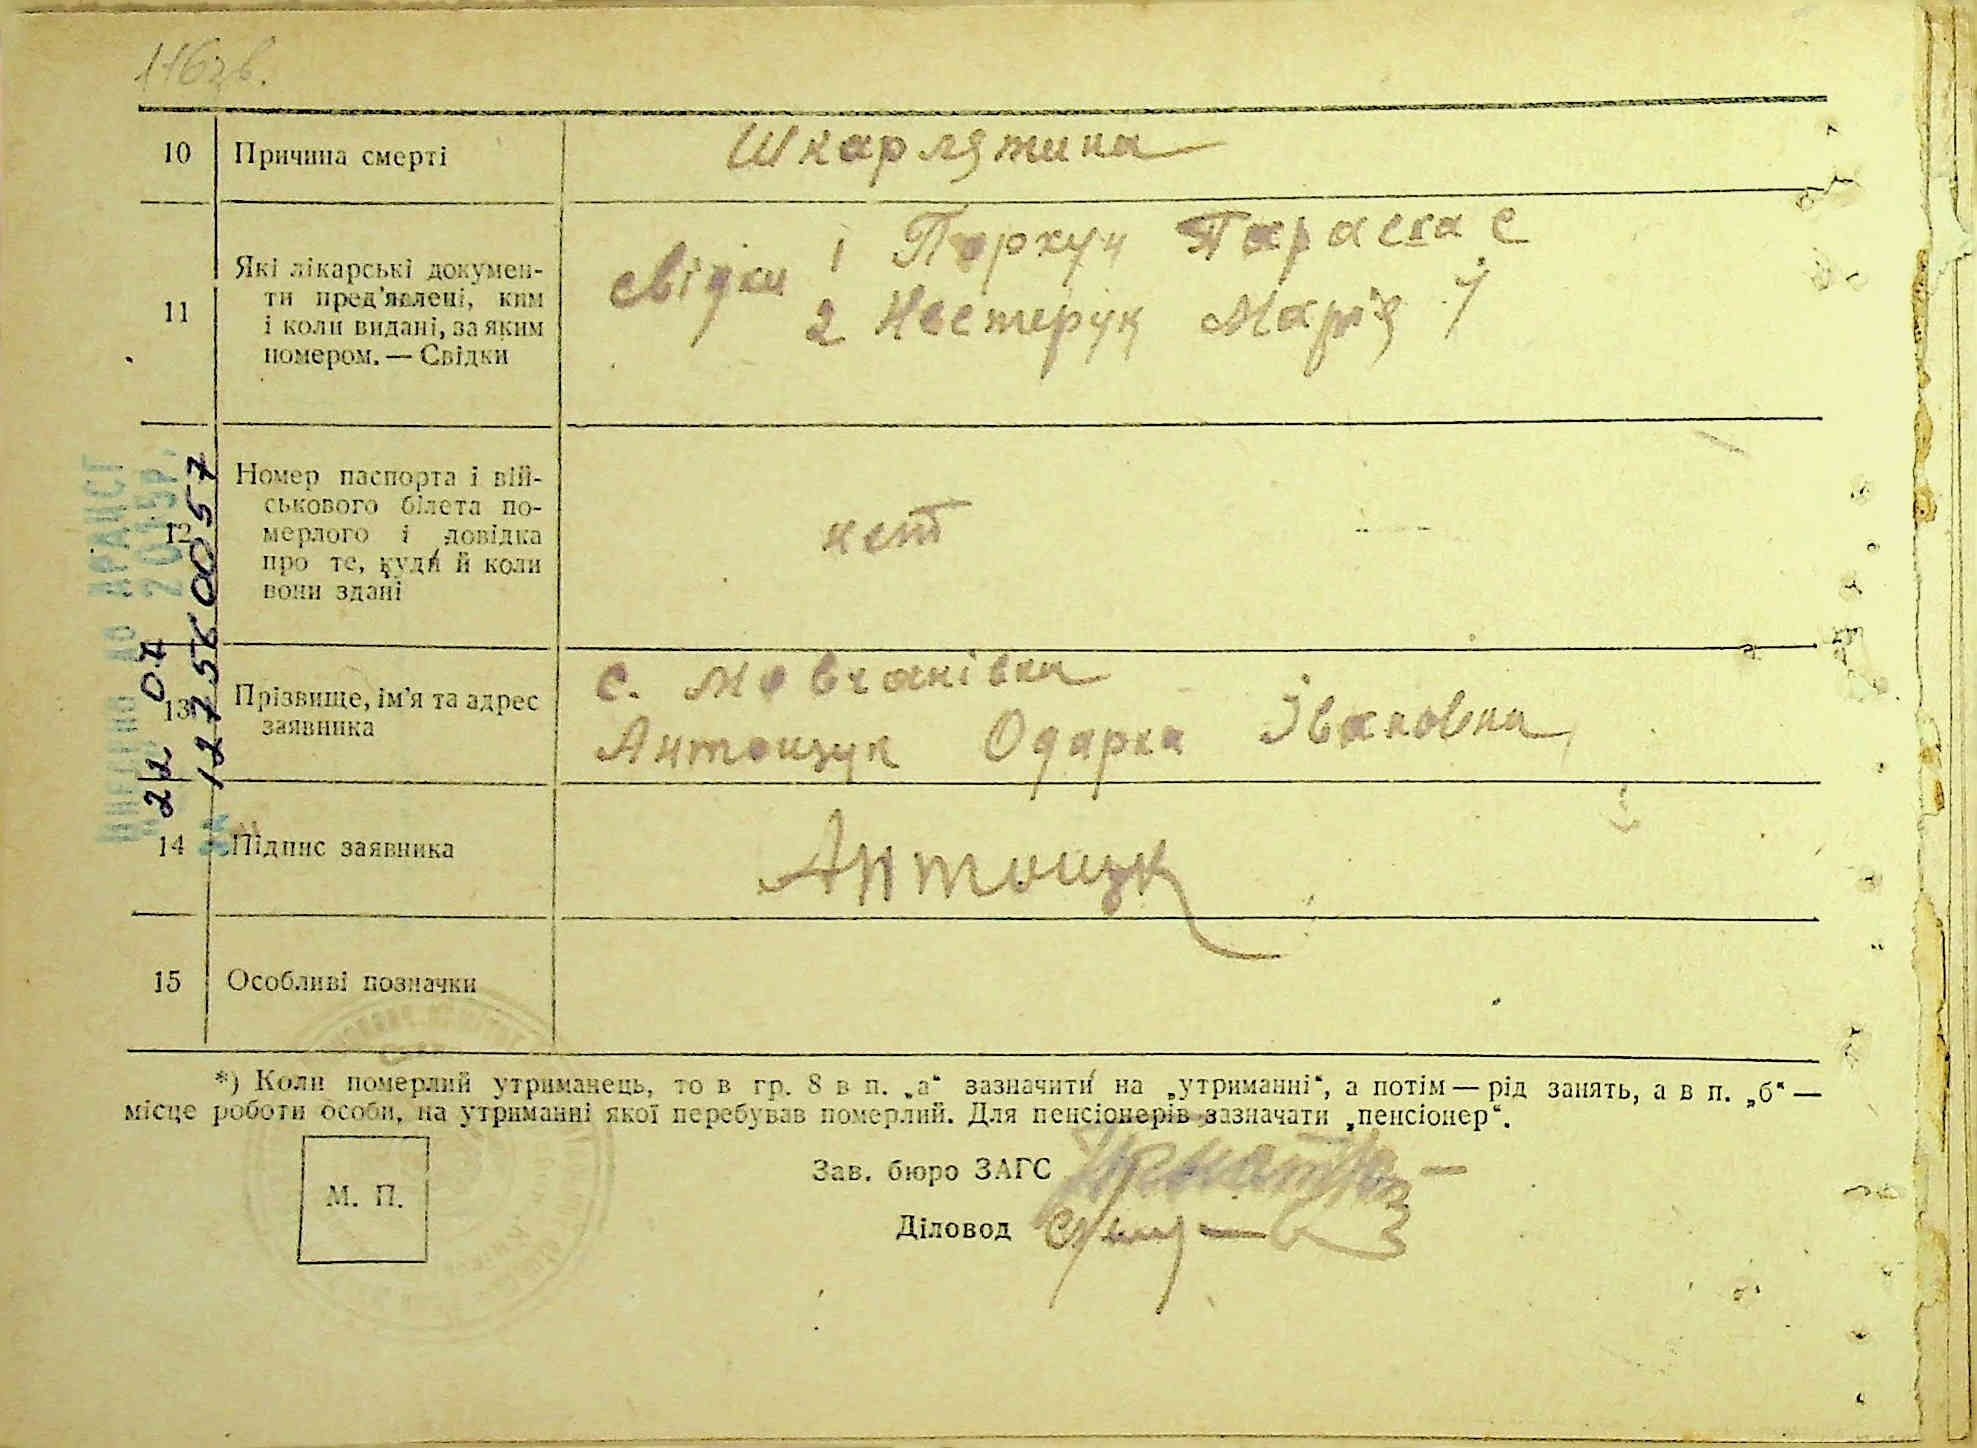 116зв.
10 Причина смерті Шкарлятина
11 Які лікарські докумен-
ти пред'явлені, ким
і коли видані, за яким
номером. — Свідки
свідки 1 Пархун Параска С
2 Нестерук Марія У
12 Номер паспорта і вій-
ськового білета по-
мерлого і довідка
про те, куди й коли
вони здані
нет
13 Прізвище, ім'я та адрес
заявника
с. Мовчанівка
Антощук Одарка Івановна
14 Підпис заявника Антощук
15 Особливі позначки
*) Коли померлий утриманець, то в гр. 8 в п. „а“ зазначити на „утриманні“, а потім — рід занять, а в п. „б“ —
місце роботи особи, на утриманні якої перебував померлий. Для пенсіонерів зазначати „пенсіонер“.
М. П.
Зав. бюро ЗАГС
Діловод
22 07
12756 0057